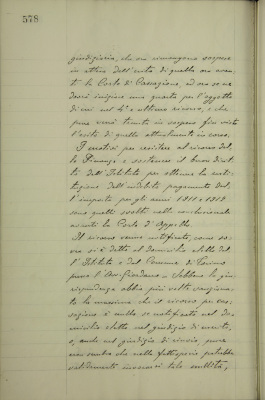 578
giudiziaria, che ora rimangono sospese
in attesa dell'esito di quella ora avan-
ti la Corte di Cassazione, ed ora se ne
dovrà iniziare una quarta per l'oggetto
di cui nel 4° e ultimo ricorso, e che
pure verrà tenuta in sospeso fin visto
l'esito di quella attualmente in corso.
I motivi per resistere al ricorso del-
le Finanze e sostenere il buon dirit-
to dell'Istituto per ottenere la resti-
tuzione dell'indebito pagamento del-
l'imposta per gli anni 1911 e 1912
sono quelli svolti nelle conclusionali
avanti la Corte d'Appello.
Il ricorso venne notificato, come so-
vra si è detto al domicilio eletto del-
l'Istituto e del Comune di Torino
presso l'Avv. Giordano. Sebbene la giu-
risprudenza abbia più volte sanziona-
to la massima che il ricorso per cas-
sazione è nullo se notificato nel do-
micilio eletto nel giudizio di merito,
o, anche nel giudizio di rinvio, pure
non sembra che nella fattispecie potrebbe
validamente invocarsi tale nullità,